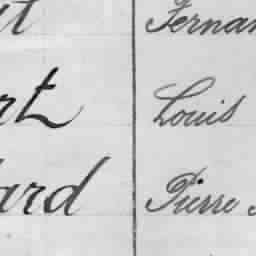 Fernan
Louis
ard Pierre